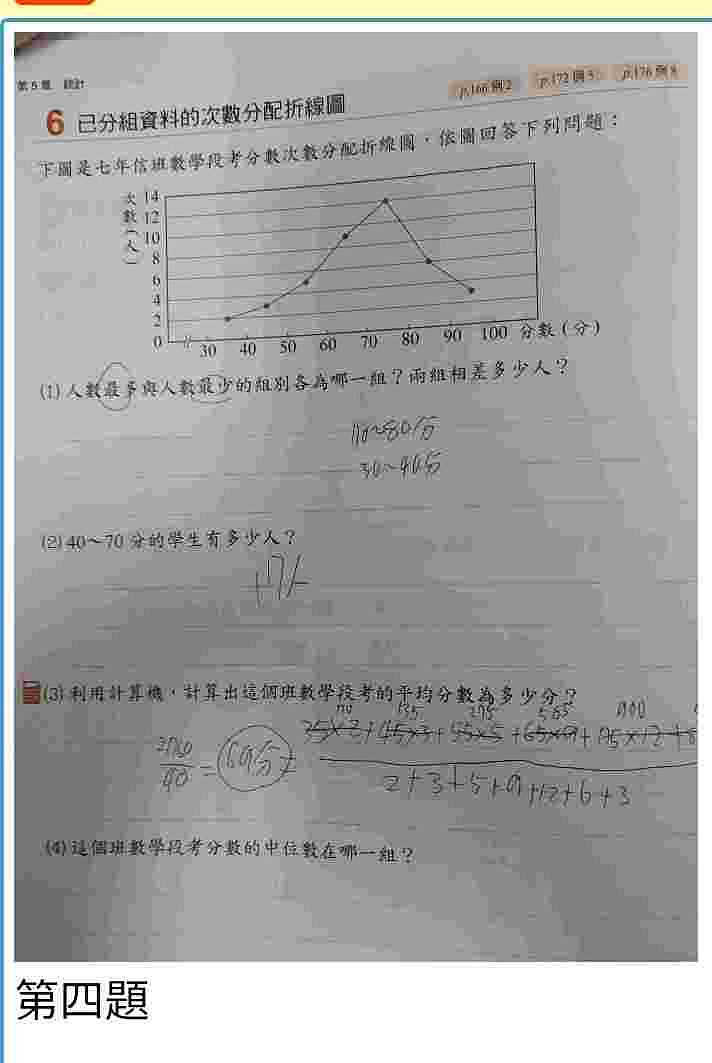 第5章 統計
p.166 例2 p.172 例5 p.176 例8
6 已分組資料的次數分配折線圖
下圖是七年信班數學段考分數次數分配折線圖，依圖回答下列問題：
次數(人)
14
12
10
8
6
4
2
0
30 40 50 60 70 80 90 100 分數(分)
(1) 人數最多與人數最少的組別各為哪一組？兩組相差多少人？
70~80分
30~40分
(2) 40～70 分的學生有多少人？
17人
(3) 利用計算機，計算出這個班數學段考的平均分數為多少分？
70 135 275 585 900
35×2+45×3+55×5+65×9+75×12+8
2+3+5+9+12+6+3
2760
40
=69分
(4) 這個班數學段考分數的中位數在哪一組？
第四題